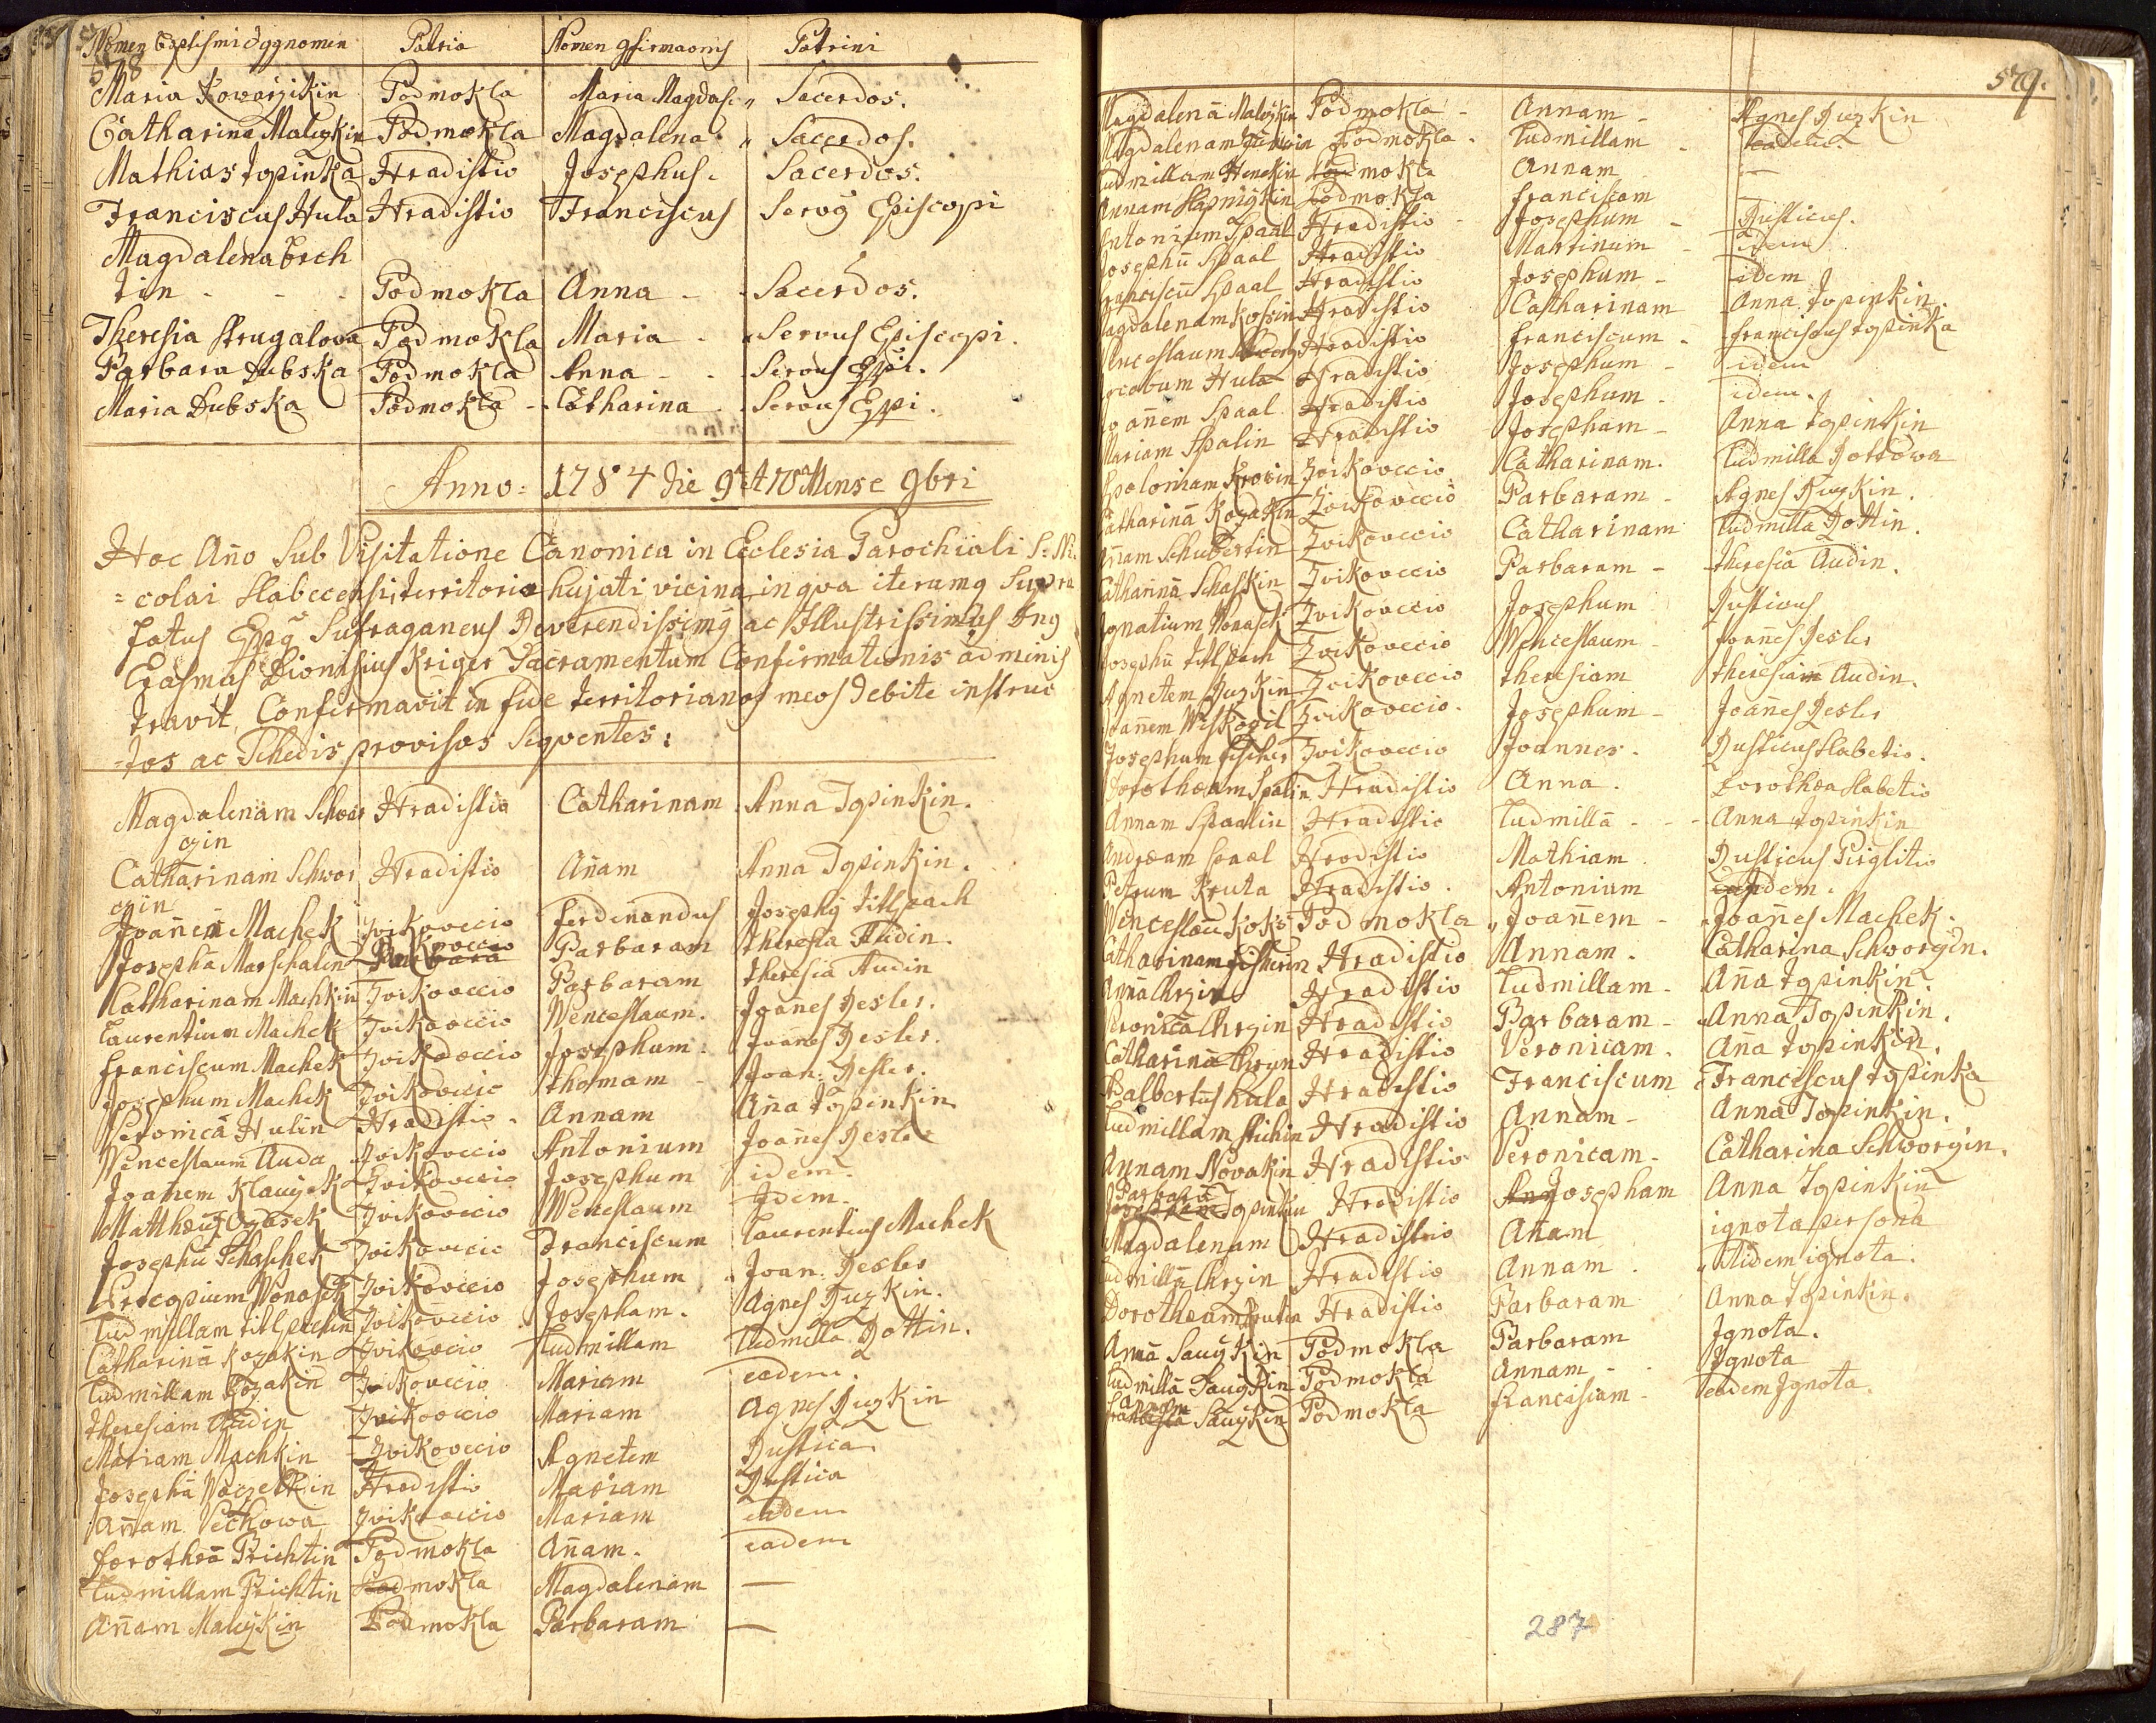 Nomen Baptismi & Cognomen Patria Nomen Patrini
578
Maria Kowarzikin Podmokla Maria Magdal. Sacerdos.
Catharina Maleyzkin Podmokla Magdalena Sacerdos.
Mathias Topinka Hradistio Josephus. Sacerdos.
Franciscus Hula Hradistio Franciscus Servg Episcopi
Magdalena Brch
tin - - - Podmokla Anna - - Sacerdos.
Theresia Strugalova Podmokla Maria - Servus Episcopi.
Barbara Dubska Podmokla Anna - - Servus Eppi.
Maria Dubska Podmokla - Catharina Servus Eppi.
Anno: 1784 die 9 Mense 9bri
Hoc Año Sub Visitatione Canonica in Eclesia Parochiali S: Ni
=colai Slabecensi, territorio hujati vicina, in qva iterumq Supra
fatus Eppg Sufraganeus Reverendissimg ac Illustrissimus Dng
Erasmus Dionisius Kriger Sacramentum Confirmationis adminis
travit, Confirmavit in fide territorianos meos debite instruc
=tos ac Schedis provisos Seqventes:
Magdalenam Schwor Hradistio Catharinam Anna Topinkin.
czin
Catharinam Schwor Hradistio Añam Anna Topinkin.
czin
Joañem Machek Zvikoveciο Ferdinandus Josephg Titlpach
Josepha Marschalin Zvikovecio Barbaram Theresia Audin.
Catharinam Machkin Zvikovecio Barbaram Theresia Audin
Laurentium Machek Zvikovecio Wenceslaum. Joañes Resler.
Franciscum Machek Zvikovecio Josephum. Joañes Resler.
Josephum Machek Zvikovecio Thomam - Joan: Resler.
Veronicā Hulin Hradistio. Annam Aña Topinkin
Wenceslaum Auda Zvikovecio Antonium Joañes Resler
Joañem Klauyzek Zvikovecio Josephum idem.
Matthæus Zvikovecio Wenceslaum Idem.
Josephū Schaschek Zvikovecio Franciscum Laurentius Machek
Procopium Wonasek Zvikovecio Josephum Joan: Resler
Ludmillam Titlpachin Zvikovecio Josepham. Agnes Ruzkin.
Catharinā Kozakin Zvikovecio Ludmillam Ludmilla Dottin.
Ludmillam Kozakin Zvikovecio Mariam eadem.
Theresiam Audin Zvikovecio Mariam Agnes Ruzkin
Mariam Machkin Zvikovecio Agnetem Rustica
Josephā Hradistio Mariam Rustica
Añam Veckowa Zvikovecio Mariam eadem
Dorotheā Brichtin Podmokla Añam. eadem
Ludmillam Brichtin Podmokla Magdalenam —
Añam Maleyzkin Podmokla Barbaram —
579.
Magdalenā Maleyzkin Podmokla - Annam - Agnes Ruzkin
Magdalenam Podmokla. Ludmillam - eadem.
Ludmillam Hynekin Podmokla Annam —
Annam Podmokla Franciscam —
Antonium Spaal Hradistio - Josephum - Rusticus.
Josephū Spaal Hradistio Martinum - idem
Franciscū Spaal Hradistio Josephum - idem
Magdalenam Hradistio Catharinam Anna Topinkin.
Wenceslaum Hradistio Franciscum - Franciscus Topinka
Jacobum Hula Hradistio Josephum - idem
Joañem Spaal Hradistio Josephum - idem.
Mariam Spalin Hradistio Josepham - Anna Topinkin
Apoloniam Zvikovecio Catharinam. Ludmilla
Catharinā Kozakin Zvikovecio Barbaram - Agnes Ruzkin.
Añam Schubertin Zvikovecio Catharinam Ludmilla Dottin.
Catharinā Schaskin Zvikovecio Barbaram - Theresia Audin.
Ignatium Wonasek Zvikovecio Josephum Rusticus
Josephū Titlpach Zvikovecio Wenceslaum - Joañes Resler
Agnetem Ruzkin Zvikovecio Theresiam Theresiam Audin.
Joañem Wiskoczil Zvikovecio. Josephum - Joañes Resler
Josephum Fischer Zvikovecio Joannes. Rusticus Slabetio.
Dorotheam Spalin Hradistio Anna. Dorothea Slabetio
Annam Spaalin Hradistio Ludmillā - - - Anna Topinkin
Andream Spaal Hradistio Mathiam. Rusticus
Petrum Kruta Hradistio. Antonium idem.
Wenceslaū Koks Podmokla Joañem - Joañes Machek.
Catharinam Fischerin Hradistio Annam. Catharina Schworczin.
Annā Chrzin Hradistio Ludmillam - Aña Topinkin.
Veronica Chrzin Hradistio Barbaram - Anna Topinkin.
Catharinā Chrzin Hradistio Veronicam. Ana Topinkin.
Adalbertus Hula Hradistio Franciscum Franciscus Topinka
Ludmillam Hradistio Annam - Anna Topinkin.
Annam Novakin Hradistio Veronicam - Catharina Schworczin.
Barbarā
Topinkin Hradistio Josepham Anna Topinkin
Magdalenam Hradistio Añam ignota persona
Ludmillā Chrzin Hradistio Annam. itidem ignota.
Dorotheam Krutin Hradistio Barbaram Anna Topinkin.
Annā Sauyzkin Podmokla Barbaram Ignota.
Ludmillā Sauyzkin Podmokla Annam - - Ignota
Sauyzkin Podmokla Franciscam - eadem Ignota.
287